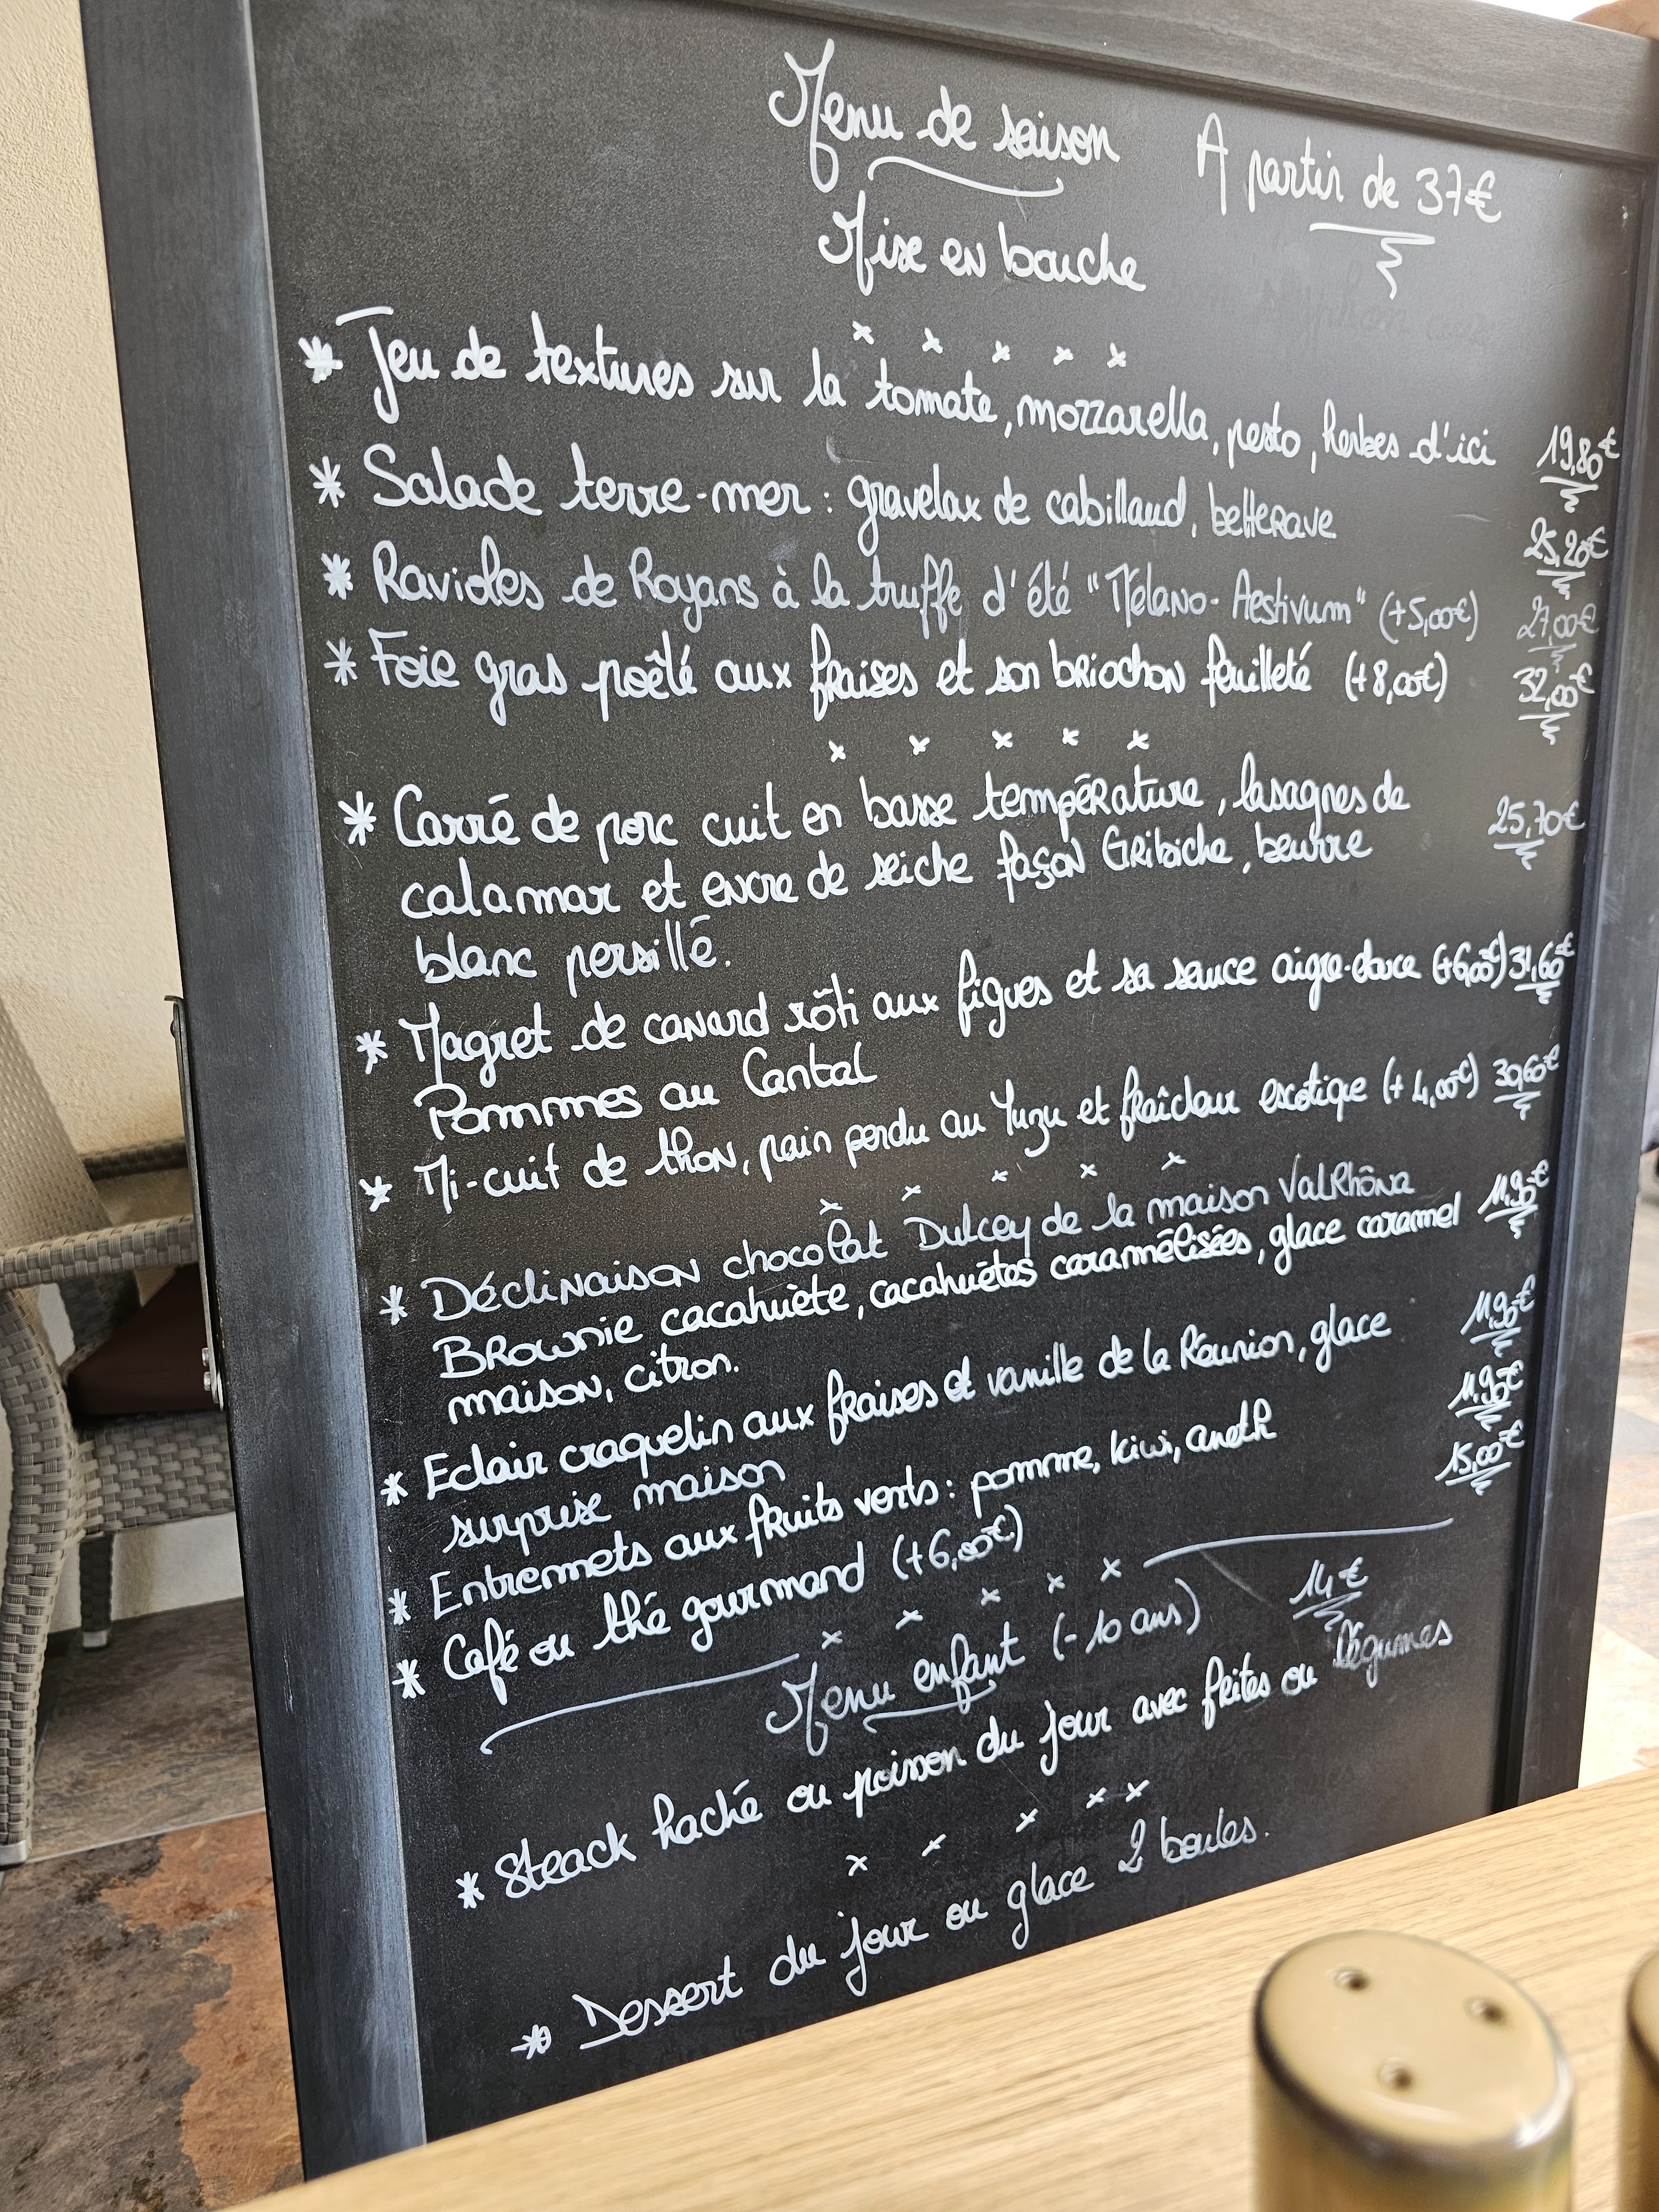 Menu de saison A partir de 37€
Mise en bouche
* Jeu de textures sur la tomate, mozzarella, pesto, herbes d'ici 19,80€
* Salade terre-mer : gravelax de cabillaud, betterave 25,20€
* Ravioles de Royans à la truffe d'été "Mélano-Aestivum" (+5,00€) 27,00€
* Foie gras poêlé aux fraises et son briochon feuilleté (+8,00€)
* Carré de porc cuit en basse température, lasagnes de 25,70€
calamar et encre de seiche façon Gribiche, beurre
blanc persillé.
* Magret de canard rôti aux figues et sa sauce aigre-douce (+6,00€) 31,60€
Pommes au Cantal
* Mi-cuit de thon, pain perdu au Yuzu et fraîcheur exotique (+4,00€) 30,60€
* Déclinaison chocolat Dulcey de la maison ValRhôna 11,90€
Brownie cacahuète, cacahuètes caramélisées, glace caramel
maison, citron.
* Eclair craquelin aux fraises et vanille de la Réunion, glace 11,90€
surprise maison
* Entremets aux fruits verts : pomme, kiwi, aneth 11,90€
* Café ou thé gourmand (+6,00€) 15,00€
Menu enfant (-10 ans) 14€
* Steack haché ou poisson du jour avec frites ou légumes
* Dessert du jour ou glace 2 boules.